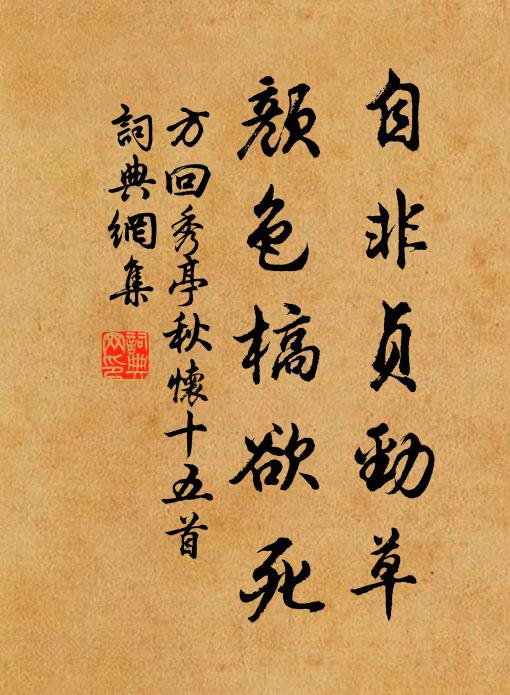 自非貞勁草
顏色槁欲死
方回秀亭秋懷十五首
詞典網集
詞典網印